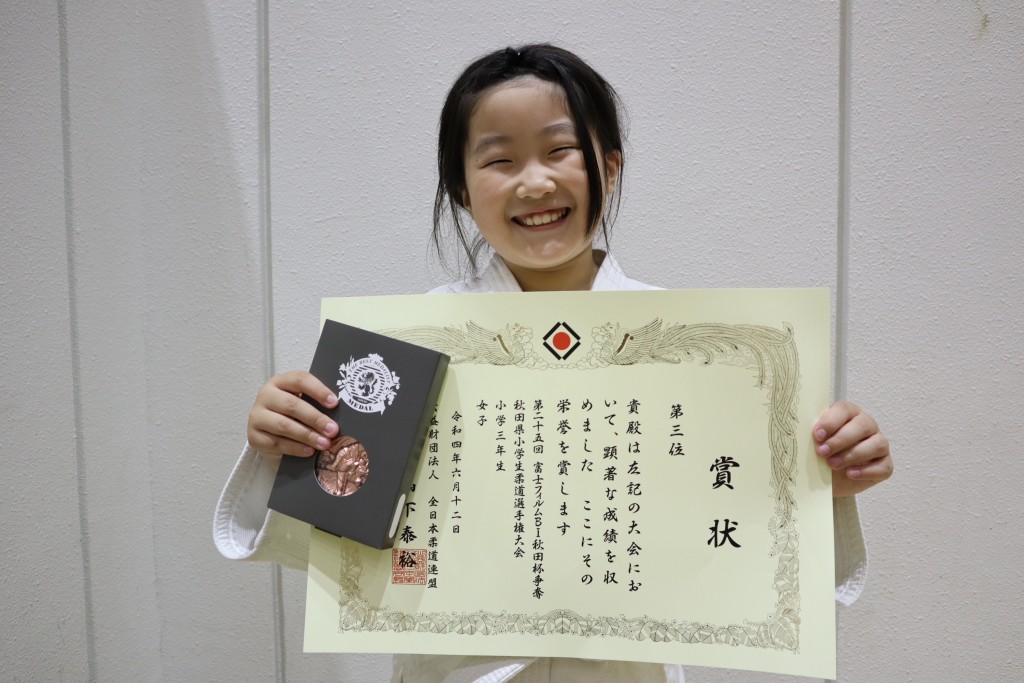 賞状
第三位
貴殿は左記の大会にお
いて、顕著な成績を収
めました ここにその
栄誉を賞します
第二十五回 富士フィルムBI秋田杯争奪
秋田県小学生柔道選手権大会
小学三年生
女子
令和四年六月十二日
益財団法人 全日本柔道連盟
下泰裕
MEDAL